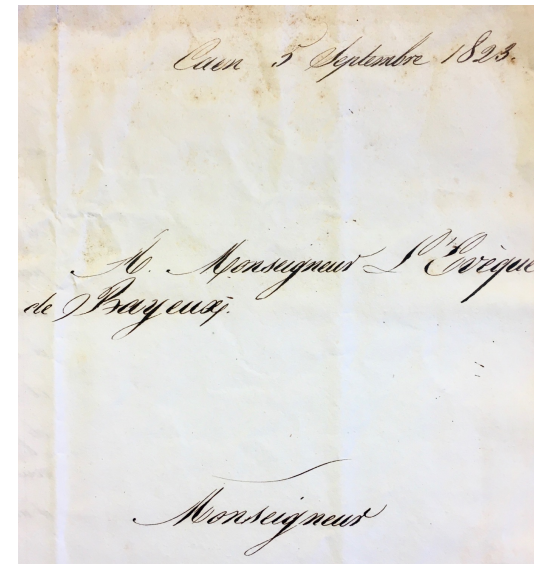 Caen 5 Septembre 1823.
A. Monseigneur L'Evèque
de Bayeux.
Monseigneur